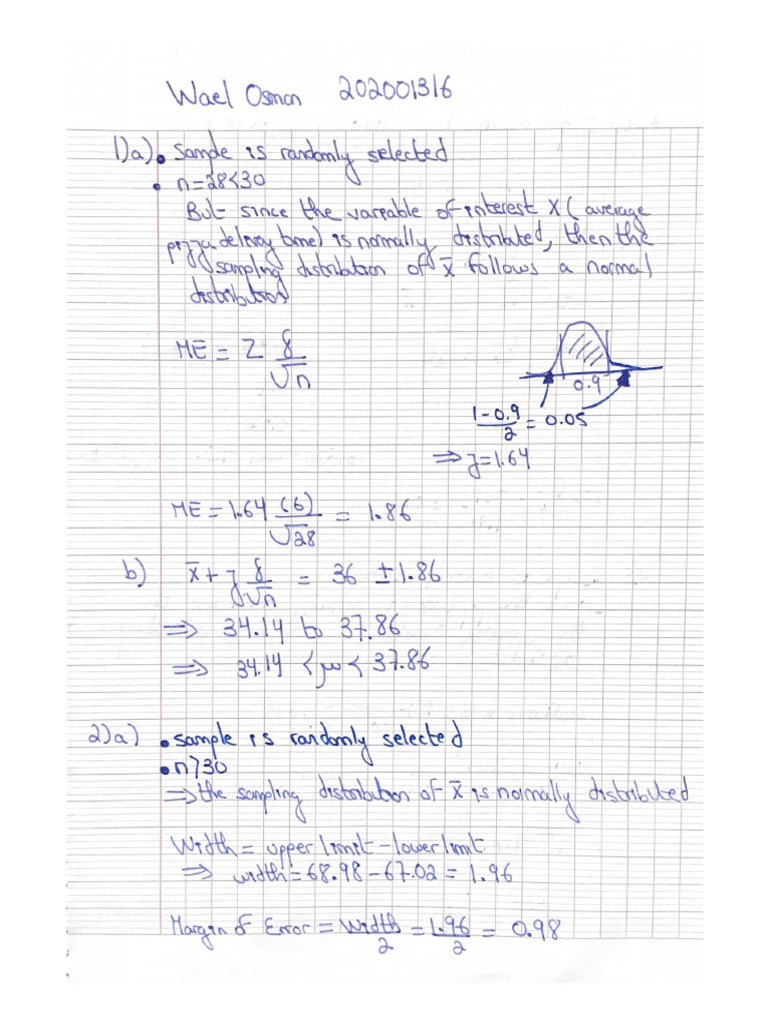 Wael Osman 202001316
1)a) • sample is randomly selected
• n=28<30
But since the variable of interest X (average
pizza delivey time) is normally distributed, then the
sampling distribution of x̄ follows a normal
distribution
ME = Z δ/√n
0.9
(1-0.9)/2 = 0.05
⇒ z=1.64
ME = 1.64 (6)/√28 = 1.86
b) x̄ + z δ/√n = 36 ± 1.86
⇒ 34.14 to 37.86
⇒ 34.14 < μ < 37.86
2)a) • sample is randomly selected
• n>30
⇒ the sampling distribution of x̄ is normally distributed
Width = upper limit - lower limit
⇒ width = 68.98 - 67.02 = 1.96
Margin of Error = Width/2 = 1.96/2 = 0.98